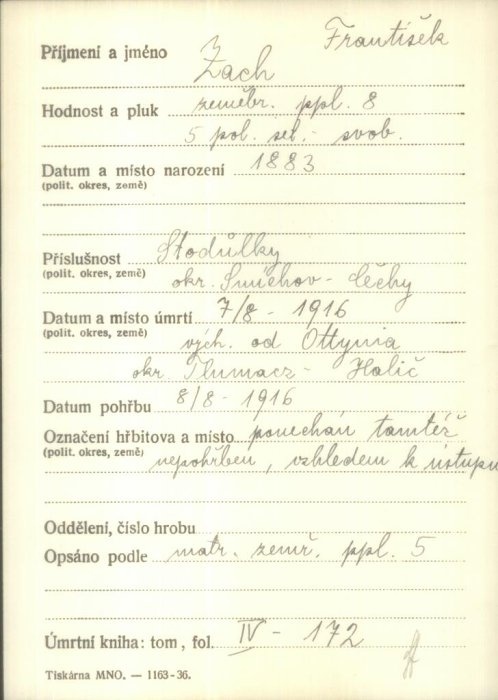 František
Příjmení a jméno Zach
Hodnost a pluk zeměbr. ppl. 8
5 pol. set. - svob.
Datum a místo narození 1883
(polit. okres, země)
Příslušnost Stodůlky
(polit. okres, země) okr. Smíchov - Čechy
Datum a místo úmrtí 7/8 - 1916
(polit. okres, země) vých. od Ottynia
okr. Tlumacz - Halič
Datum pohřbu 8/8 - 1916
Označení hřbitova a místo ponechán tamtéž
(polit. okres, země) nepohřben, vzhledem k ústupu
Oddělení, číslo hrobu
Opsáno podle matr. zemř. ppl. 5
Úmrtní kniha: tom, fol. IV - 172
Tiskárna MNO. — 1163-36.